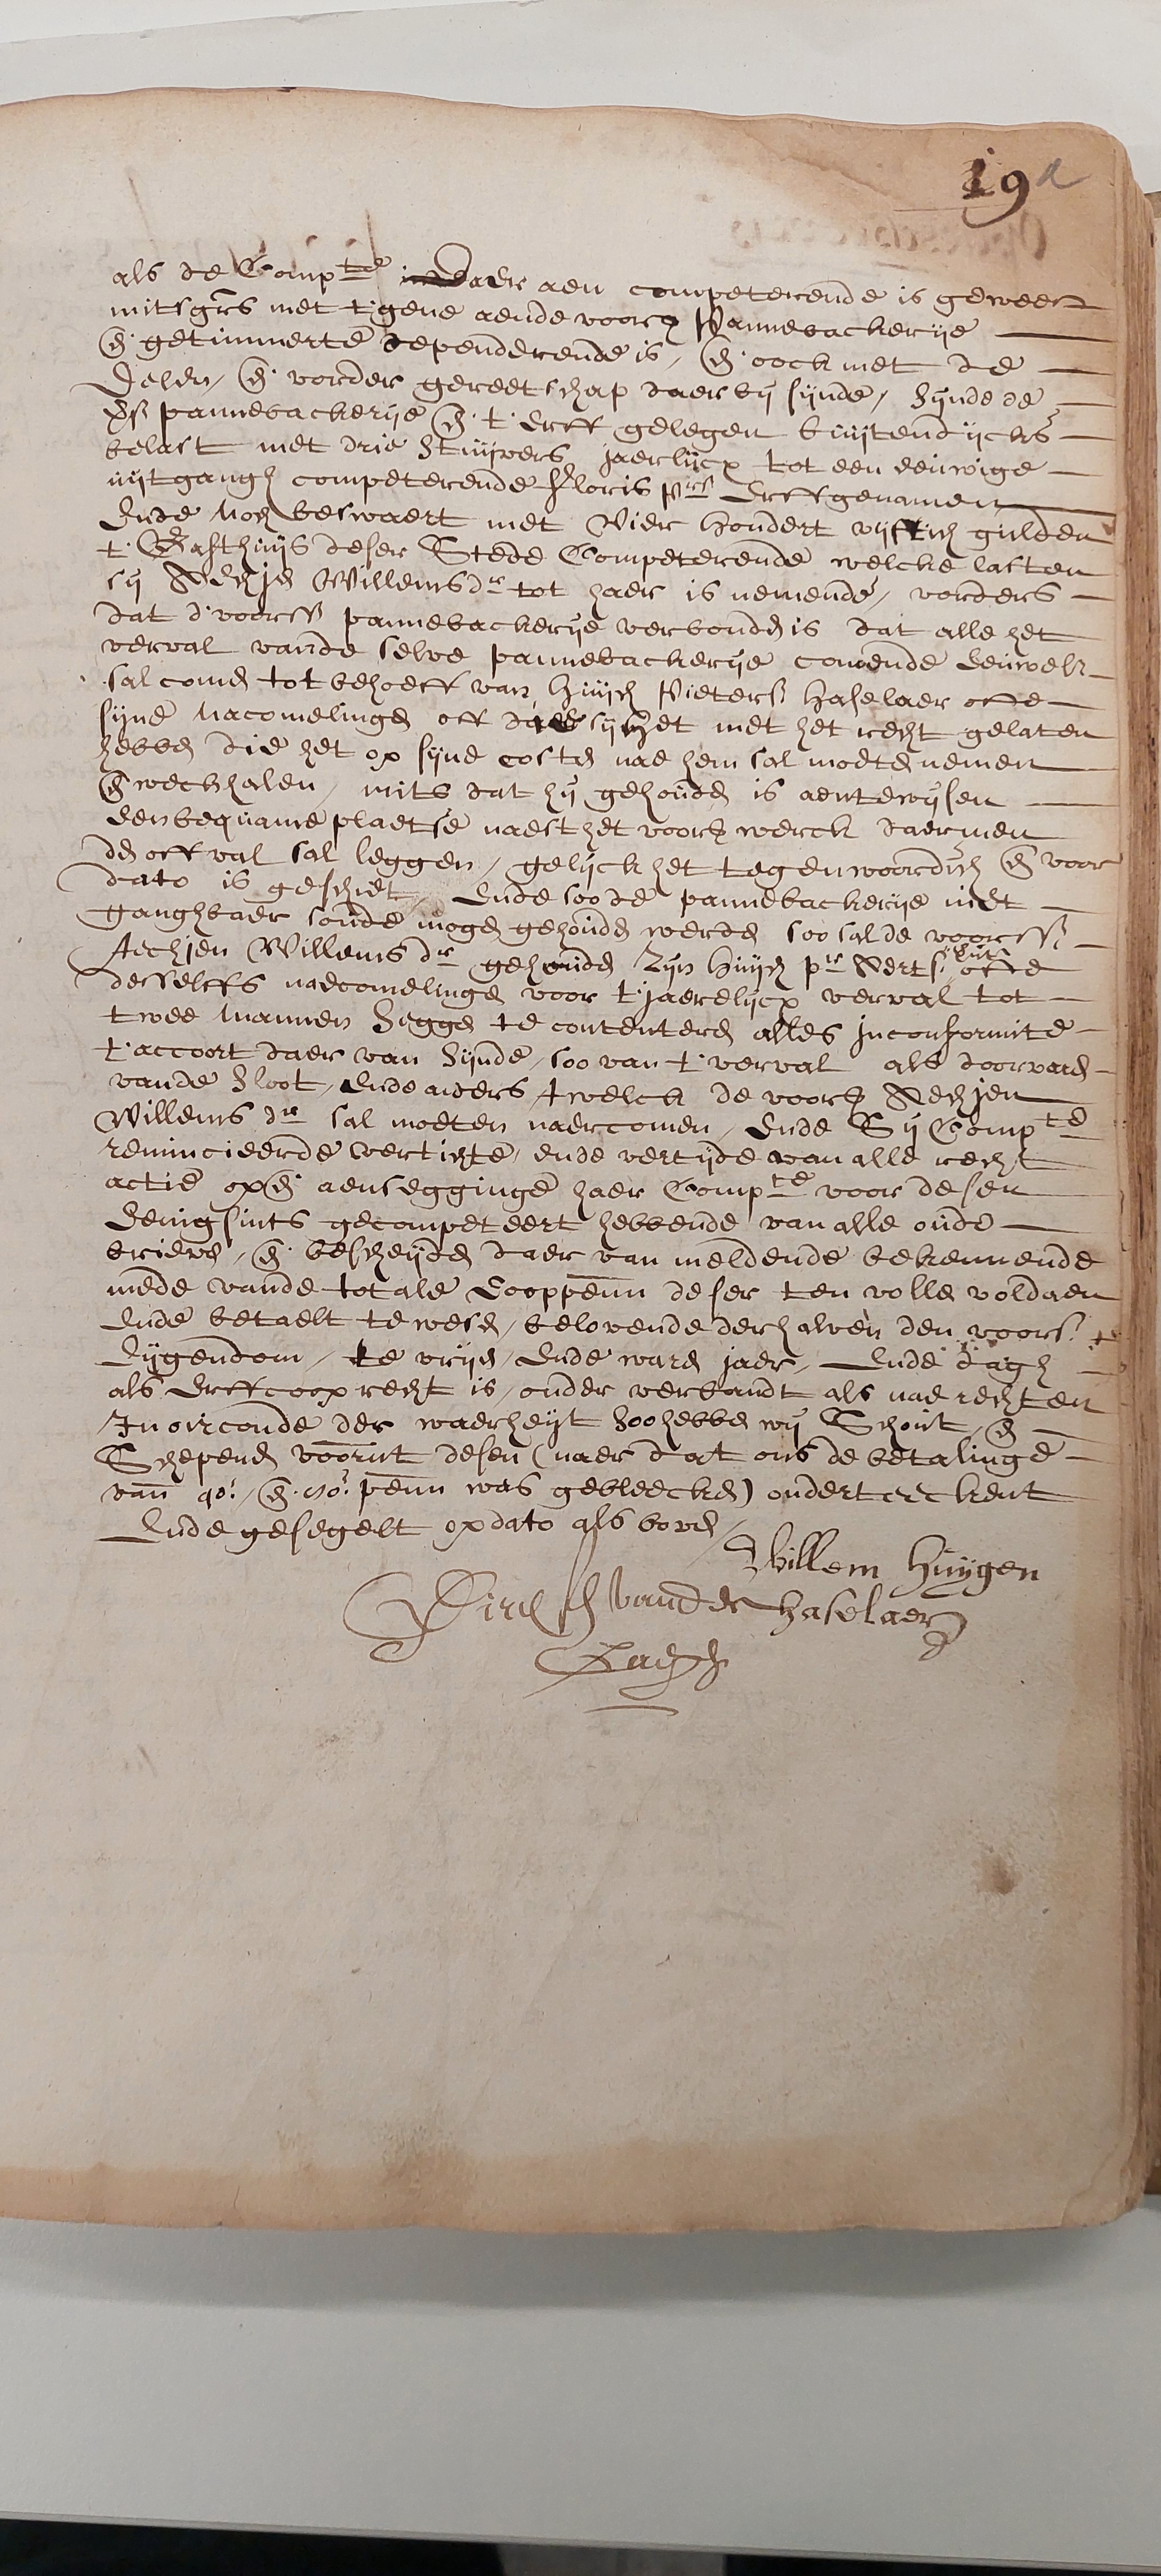 19 a
als de Compte daer aen competerende is geweest
mitsgrs met t'gene aende voorsz Pannebackerije
en getimmerte dependerende is, en oock met de
Delen, en vorder gereetschap daer bij sijnde, sijnde de
pannebackerije en t'erff gelegen buijtendijcks
belast met drie stuijvers jaerlijcx tot een eeuwige
uijtgangh competerende Floris Prs Erffgenamen
Ende noch beswaert met Vier hondert vijftich gulden
t'Gasthuijs deser Stede Competerende welcke lasten
sij Aechjen Willemsdr tot haer is nemende, vorders
dat d'voorsz pannebackerije verbonden is dat alle het
verval vande selve pannebackerije comende eeuwelr
sal comen tot behoeff van Huijch Pietersz Haselaer ofte
sijne nacomelingen off daer sij het met het recht gelaten
hebben die het op sijne costen nae hem sal moeten nemen
en wechhalen, mits dat hij gehouden is aen te wijsen
een bequame plaetse naest het voorsz werck daermen
den offval sal leggen, gelijck het tegenwoordich en voor
dato is geschiet, Ende soo de pannebackerije niet
ganghbaer soude mogen gehouden werden soo sal de voorsz
Aechjen Willems dr gehouden zijn Huijch pr Aerts ofte
desselffs naecomelingen voor t'jaerelijcx verval tot
twee mannen seggen te contenteren alles in conformite
t'accoort daer van sijnde, soo van t'verval als doorvaren
vande sloot, Ende anders, twelck de voorsz Aechjen
Willems dr sal moeten naercomen, Ende Sij Compte
renuncieerde vertichte, ende vertijde van alle recht
actie op en aensegginge haer Compte voor desen
Eenigsints gecompeteert hebbende van alle oude
brieven, en bescheijden daer van meldende bekennende
mede vande totale Cooppenn deser ten volle voldaen
Ende betaelt te wesen, belovende derhalven den voors.
Eijgendom, te vrijen, Ende waren jaer, Ende dagh
als Erffcoop recht is, onder verbandt als nae rechten
In oirconde der waerheijt soo hebben wij Schout en
Schepenen voornt desen (naer dat ons de betalinge
van 40e. en 80e. penn was gebleecken) onderteeckent
Ende gesegelt op dato als boven
Willem Huijgen
Haselaer
Dirck vander